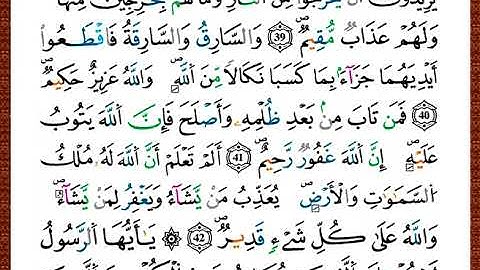 يُرِيدُونَ أَن يَخْرُجُوا۟ مِنَ ٱلنَّارِ وَمَا هُم بِخَٰرِجِينَ مِنْهَا
وَلَهُمْ عَذَابٌ مُّقِيمٌ 39 وَالسَّارِقُ وَالسَّارِقَةُ فَاقْطَعُوٓا۟
أَيْدِيَهُمَا جَزَآءًۢ بِمَا كَسَبَا نَكَالًا مِّنَ ٱللَّهِ وَاللَّهُ عَزِيزٌ حَكِيمٌ
40 فَمَن تَابَ مِنۢ بَعْدِ ظُلْمِهِۦ وَأَصْلَحَ فَإِنَّ ٱللَّهَ يَتُوبُ
عَلَيْهِ إِنَّ ٱللَّهَ غَفُورٌ رَّحِيمٌ 41 أَلَمْ تَعْلَمْ أَنَّ ٱللَّهَ لَهُۥ مُلْكُ
ٱلسَّمَٰوَٰتِ وَالْأَرْضِ يُعَذِّبُ مَن يَشَآءُ وَيَغْفِرُ لِمَن يَشَآءُ
وَاللَّهُ عَلَىٰ كُلِّ شَىْءٍ قَدِيرٌ 42 ۞ يَٰٓأَيُّهَا ٱلرَّسُولُ